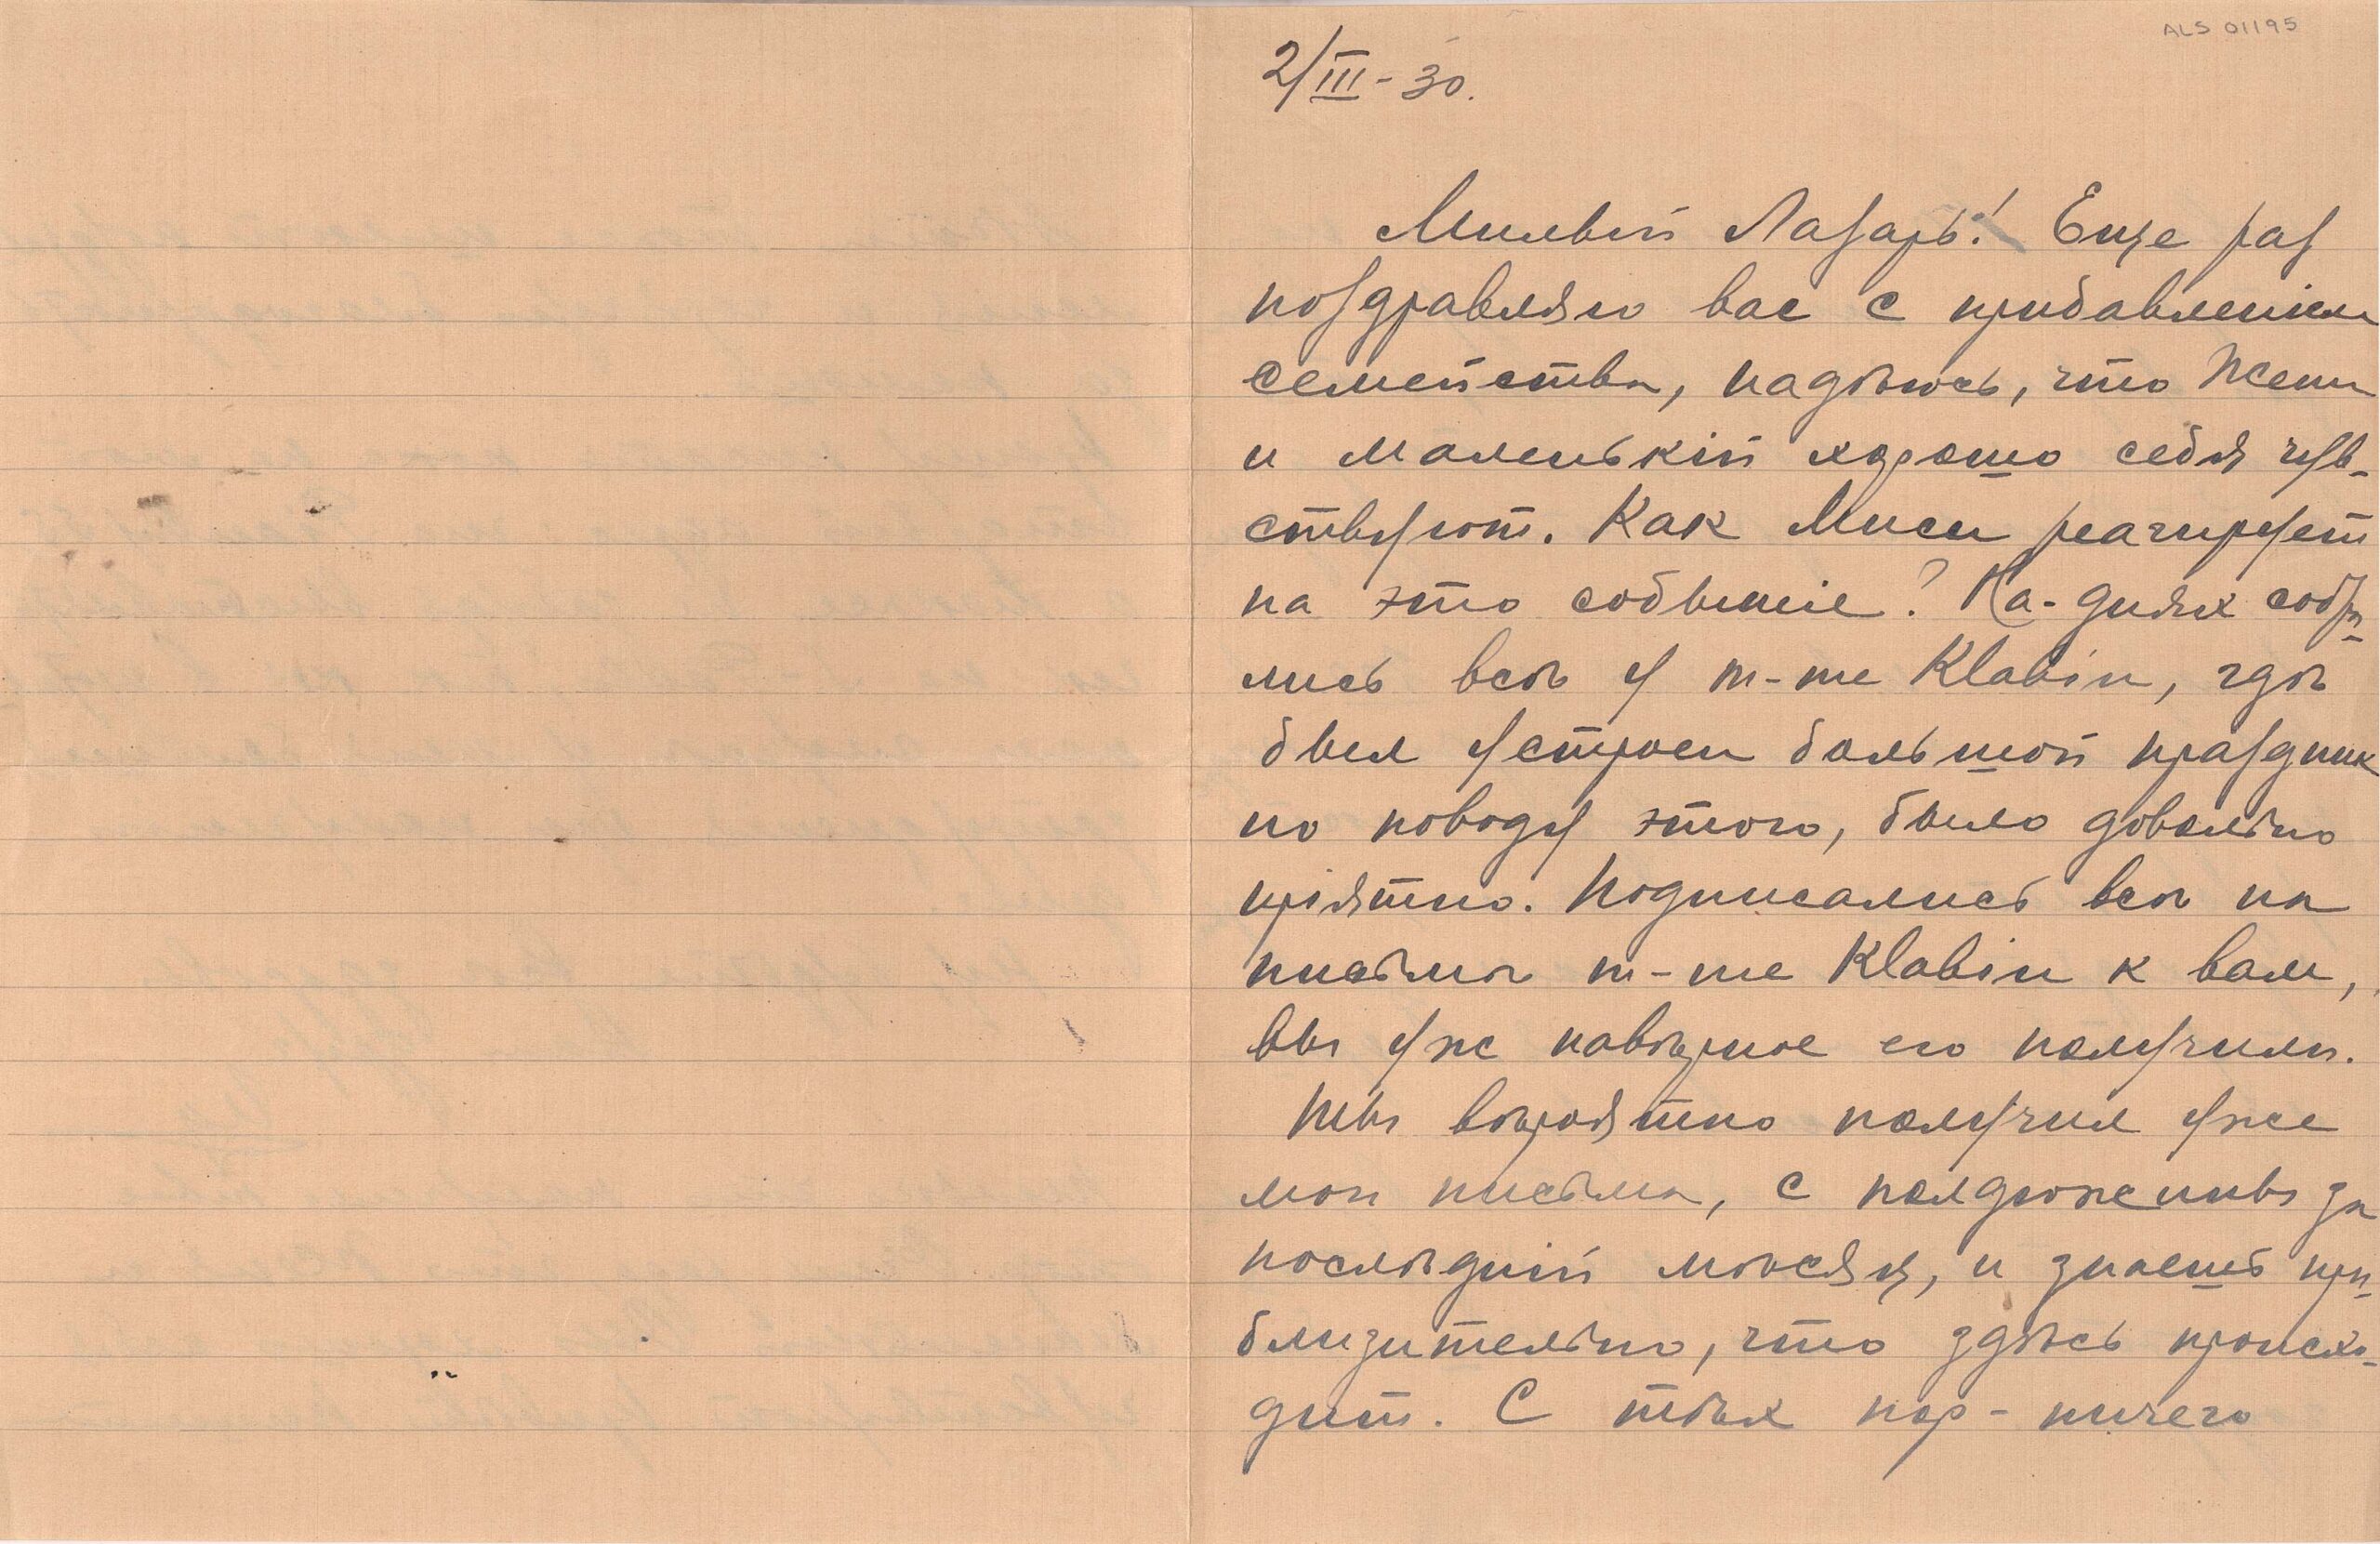 ALS 01195
2/III - 30.
Милый Лазарь! Еще раз
поздравляю вас с прибавленiем
семейства, надѣюсь, что Жени
и маленькiй хорошо себя чув-
ствуют. Как Миси реагирует
на это событiе? На-днях собра-
лись всѣ у m-me Klabin, гдѣ
был устроен большой праздник
по поводу этого, было довольно
прiятно. Подписались всѣ на
письмѣ m-me Klabin к вам,
вы уже навѣрное его получили.
Ты вѣроятно получил уже
мои письма, с полдюжины за
послѣднiй мѣсяц, и знаешь при-
близительно, что здѣсь происхо-
дит. С тѣх пор - ничего